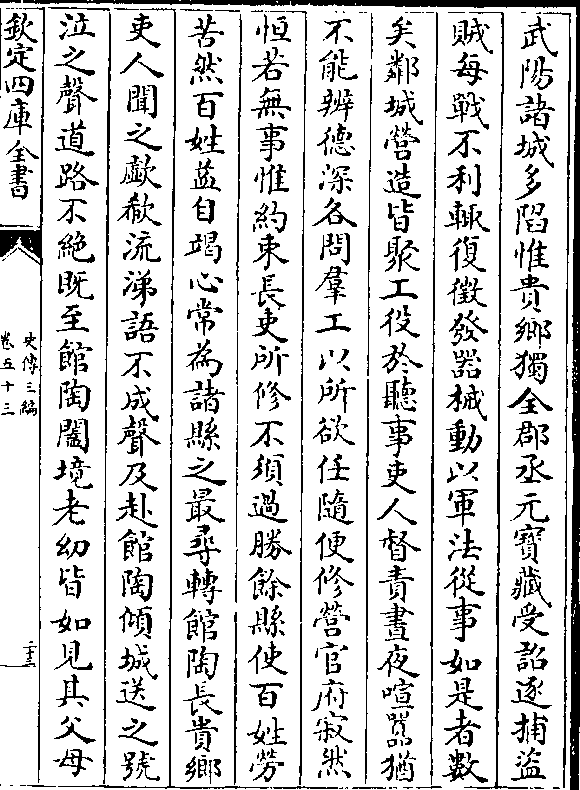 武陽諸城多陷惟貴鄉獨全郡丞元寶藏受詔逐捕盜
賊每戰不利輒復徵發器械動以軍法從事如是者數
矣鄰城營造皆聚工役於聽事吏人督責晝夜喧囂猶
不能辦德深各問羣工以所欲任隨便修營官府寂然
恒若無事惟約束長吏所修不須過勝餘縣使百姓勞
苦然百姓益自竭心常為諸縣之最尋轉館陶長貴鄉
吏人聞之歔欷流涕語不成聲及赴館陶傾城送之號
泣之聲道路不絕既至館陶闔境老幼皆如見其父母
欽定四庫全書
史傳三編
卷五十三
二十三